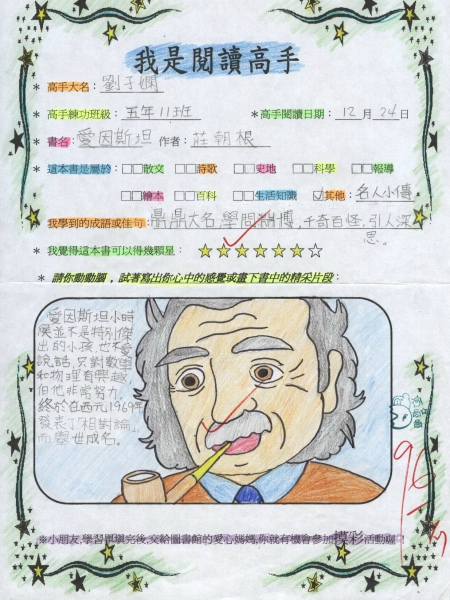 我是閱讀高手
* 高手大名：劉子嫻
* 高手練功班級：五年11班 *高手閱讀日期：12月24日
* 書名：愛因斯坦 作者：莊朝根
* 這本書是屬於：□□散文 □□詩歌 □□史地 □□科學 □□報導
□□繪本 □□百科 □□生活知識 ☑其他：名人小傳
* 我學到的成語或佳句：鼎鼎大名,學問精博,千奇百怪,引人深思。
* 我覺得這本書可以得幾顆星：★★★★★☆
* 請你動動腦，試著寫出你心中的感覺或畫下書中的精采片段：
愛因斯坦小時
候並不是特別傑
出的小孩,也不愛
說話,只對數學
和物理有興趣
但他非常努力,
終於在西元1969年
發表了「相對論」
而聲世成名。
※小朋友,學習單填完後,交給圖書館的愛心媽媽,你就有機會參加摸彩活動囉